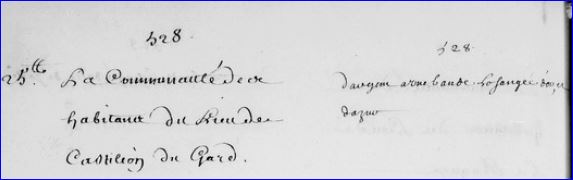 528
25.ᵗᵗ La Communauté des
habitans du Lieu de
Castilion du Gard.
528.
d'argent a une bande losangée d'or et
d'azur